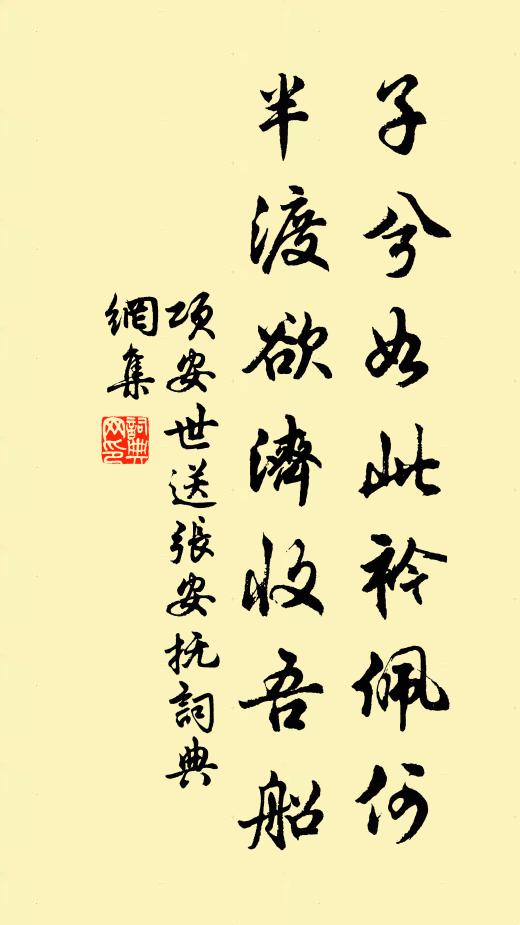 子兮如此衿佩何
半渡欲濟收吾船
項安世送張安抚詞典
網集
詞典
网印